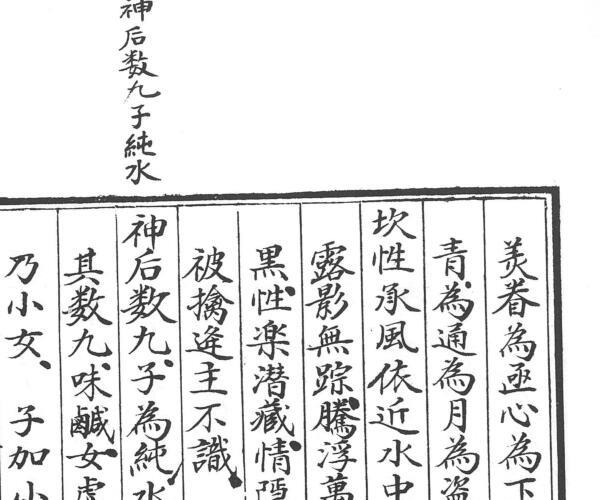 神后数九子純水
美脊為亟心為下
青為通為月為盗
坎性承風依近水中
露影無踪騰浮萬
黒性楽潜藏情
被擒逄主不識
神后数九子為純水
其数九味鹹女虚
乃小女、子加小